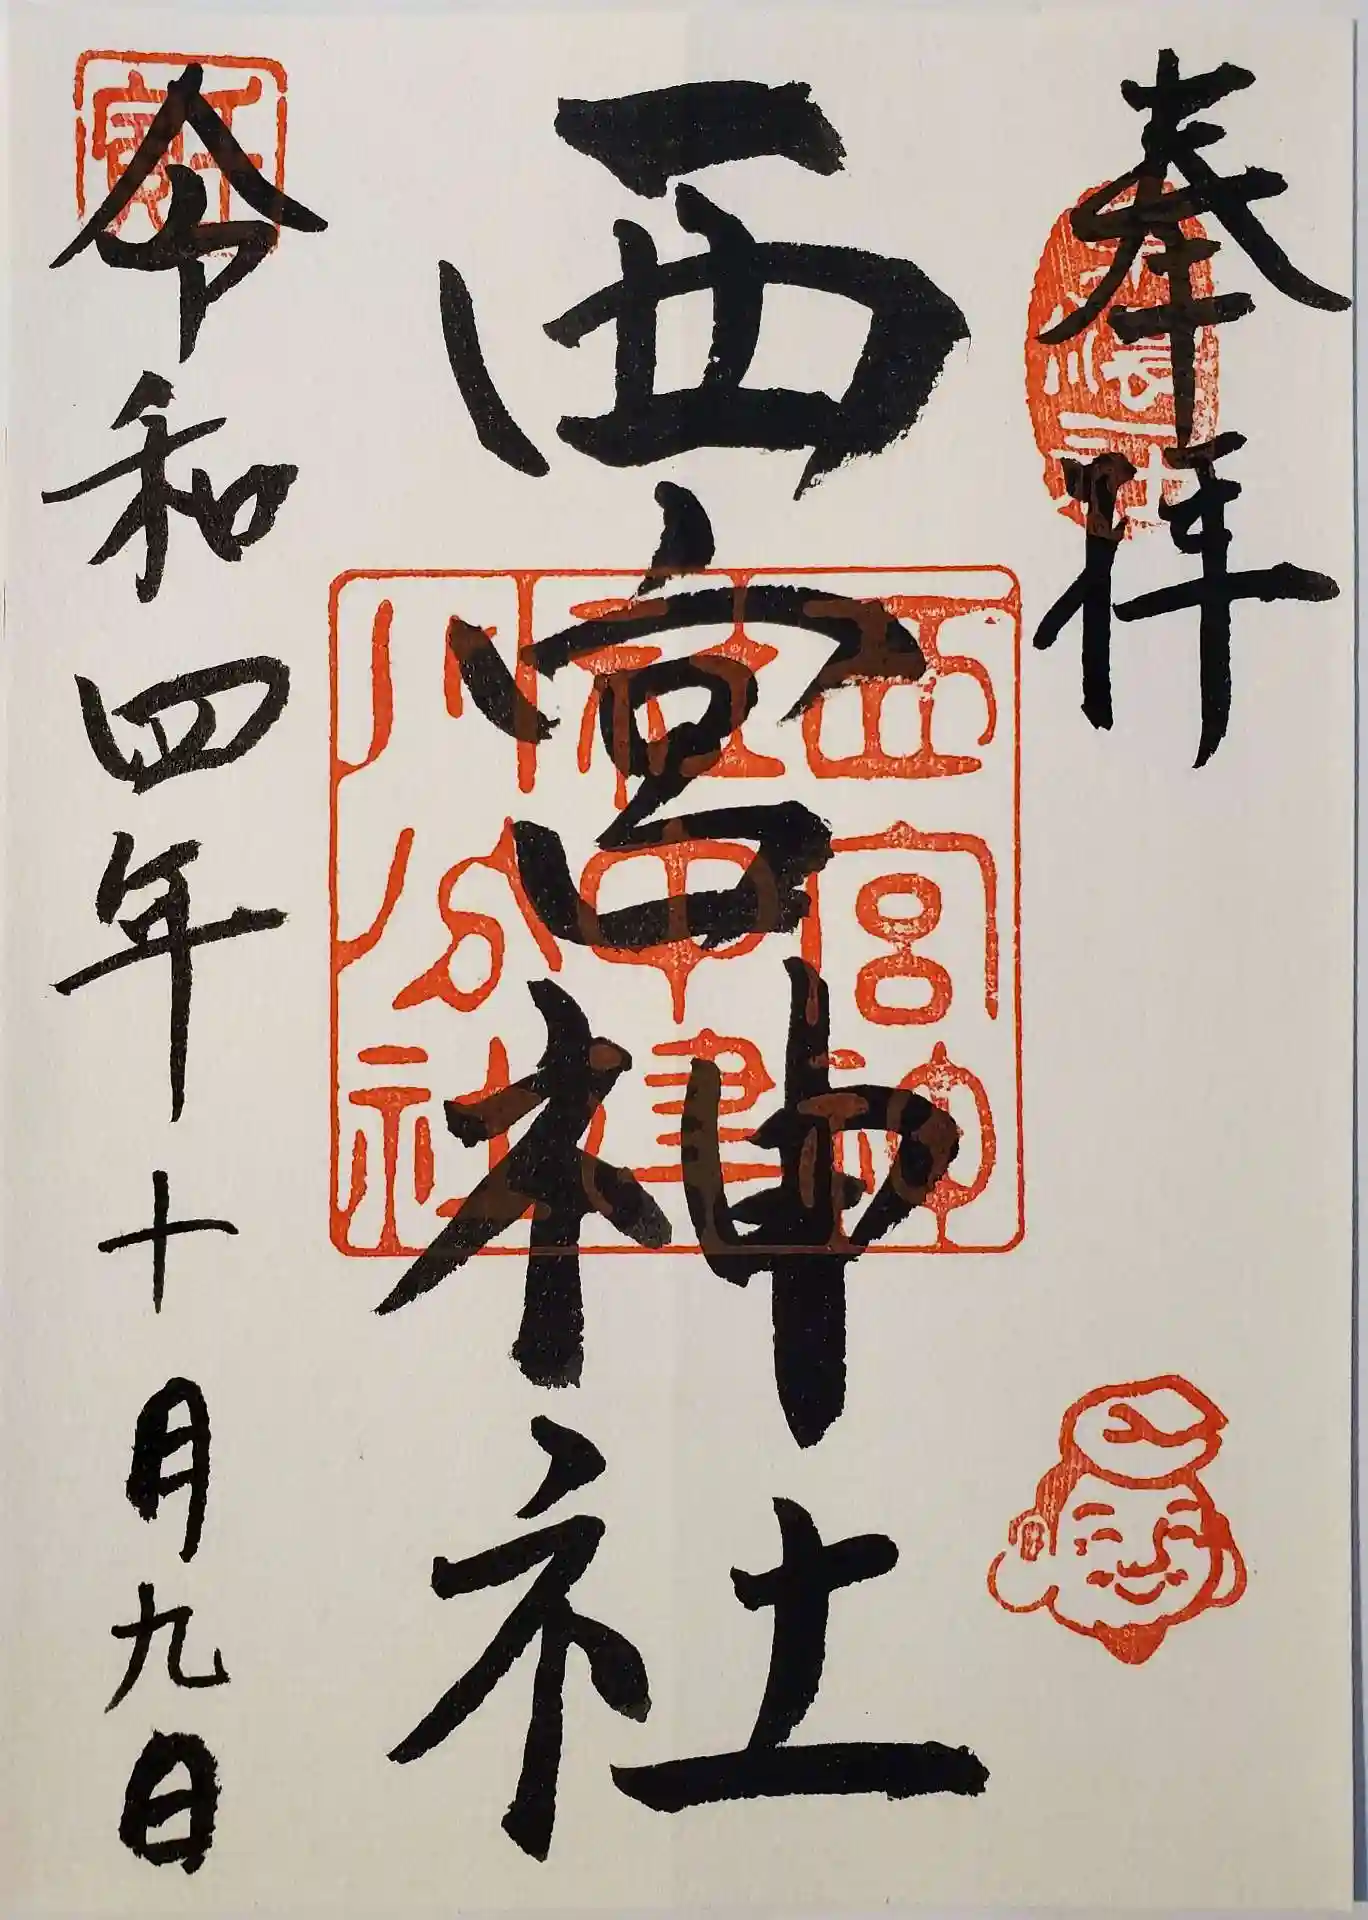 奉拝
西宮神社
西宮神
社中建
川分社
令和四年十月九日
壬寅